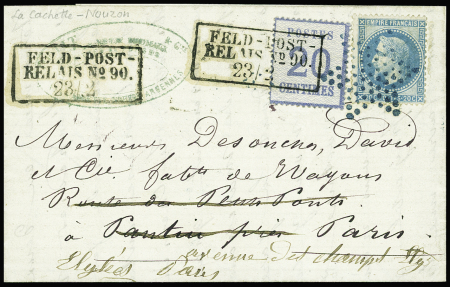 La Cachette-Nouzon
FELD-POST-
RELAIS No 90.
23/2
FELD-POST-
RELAIS No 90.
23/2
POSTES
20
CENTIMES
EMPIRE FRANÇAIS
Messieurs Desouches, David
et Cie. fabts. de Wagons
Route des Petits Ponts
à Pantin près Paris.
avenue des champs Ely
Elysées Paris